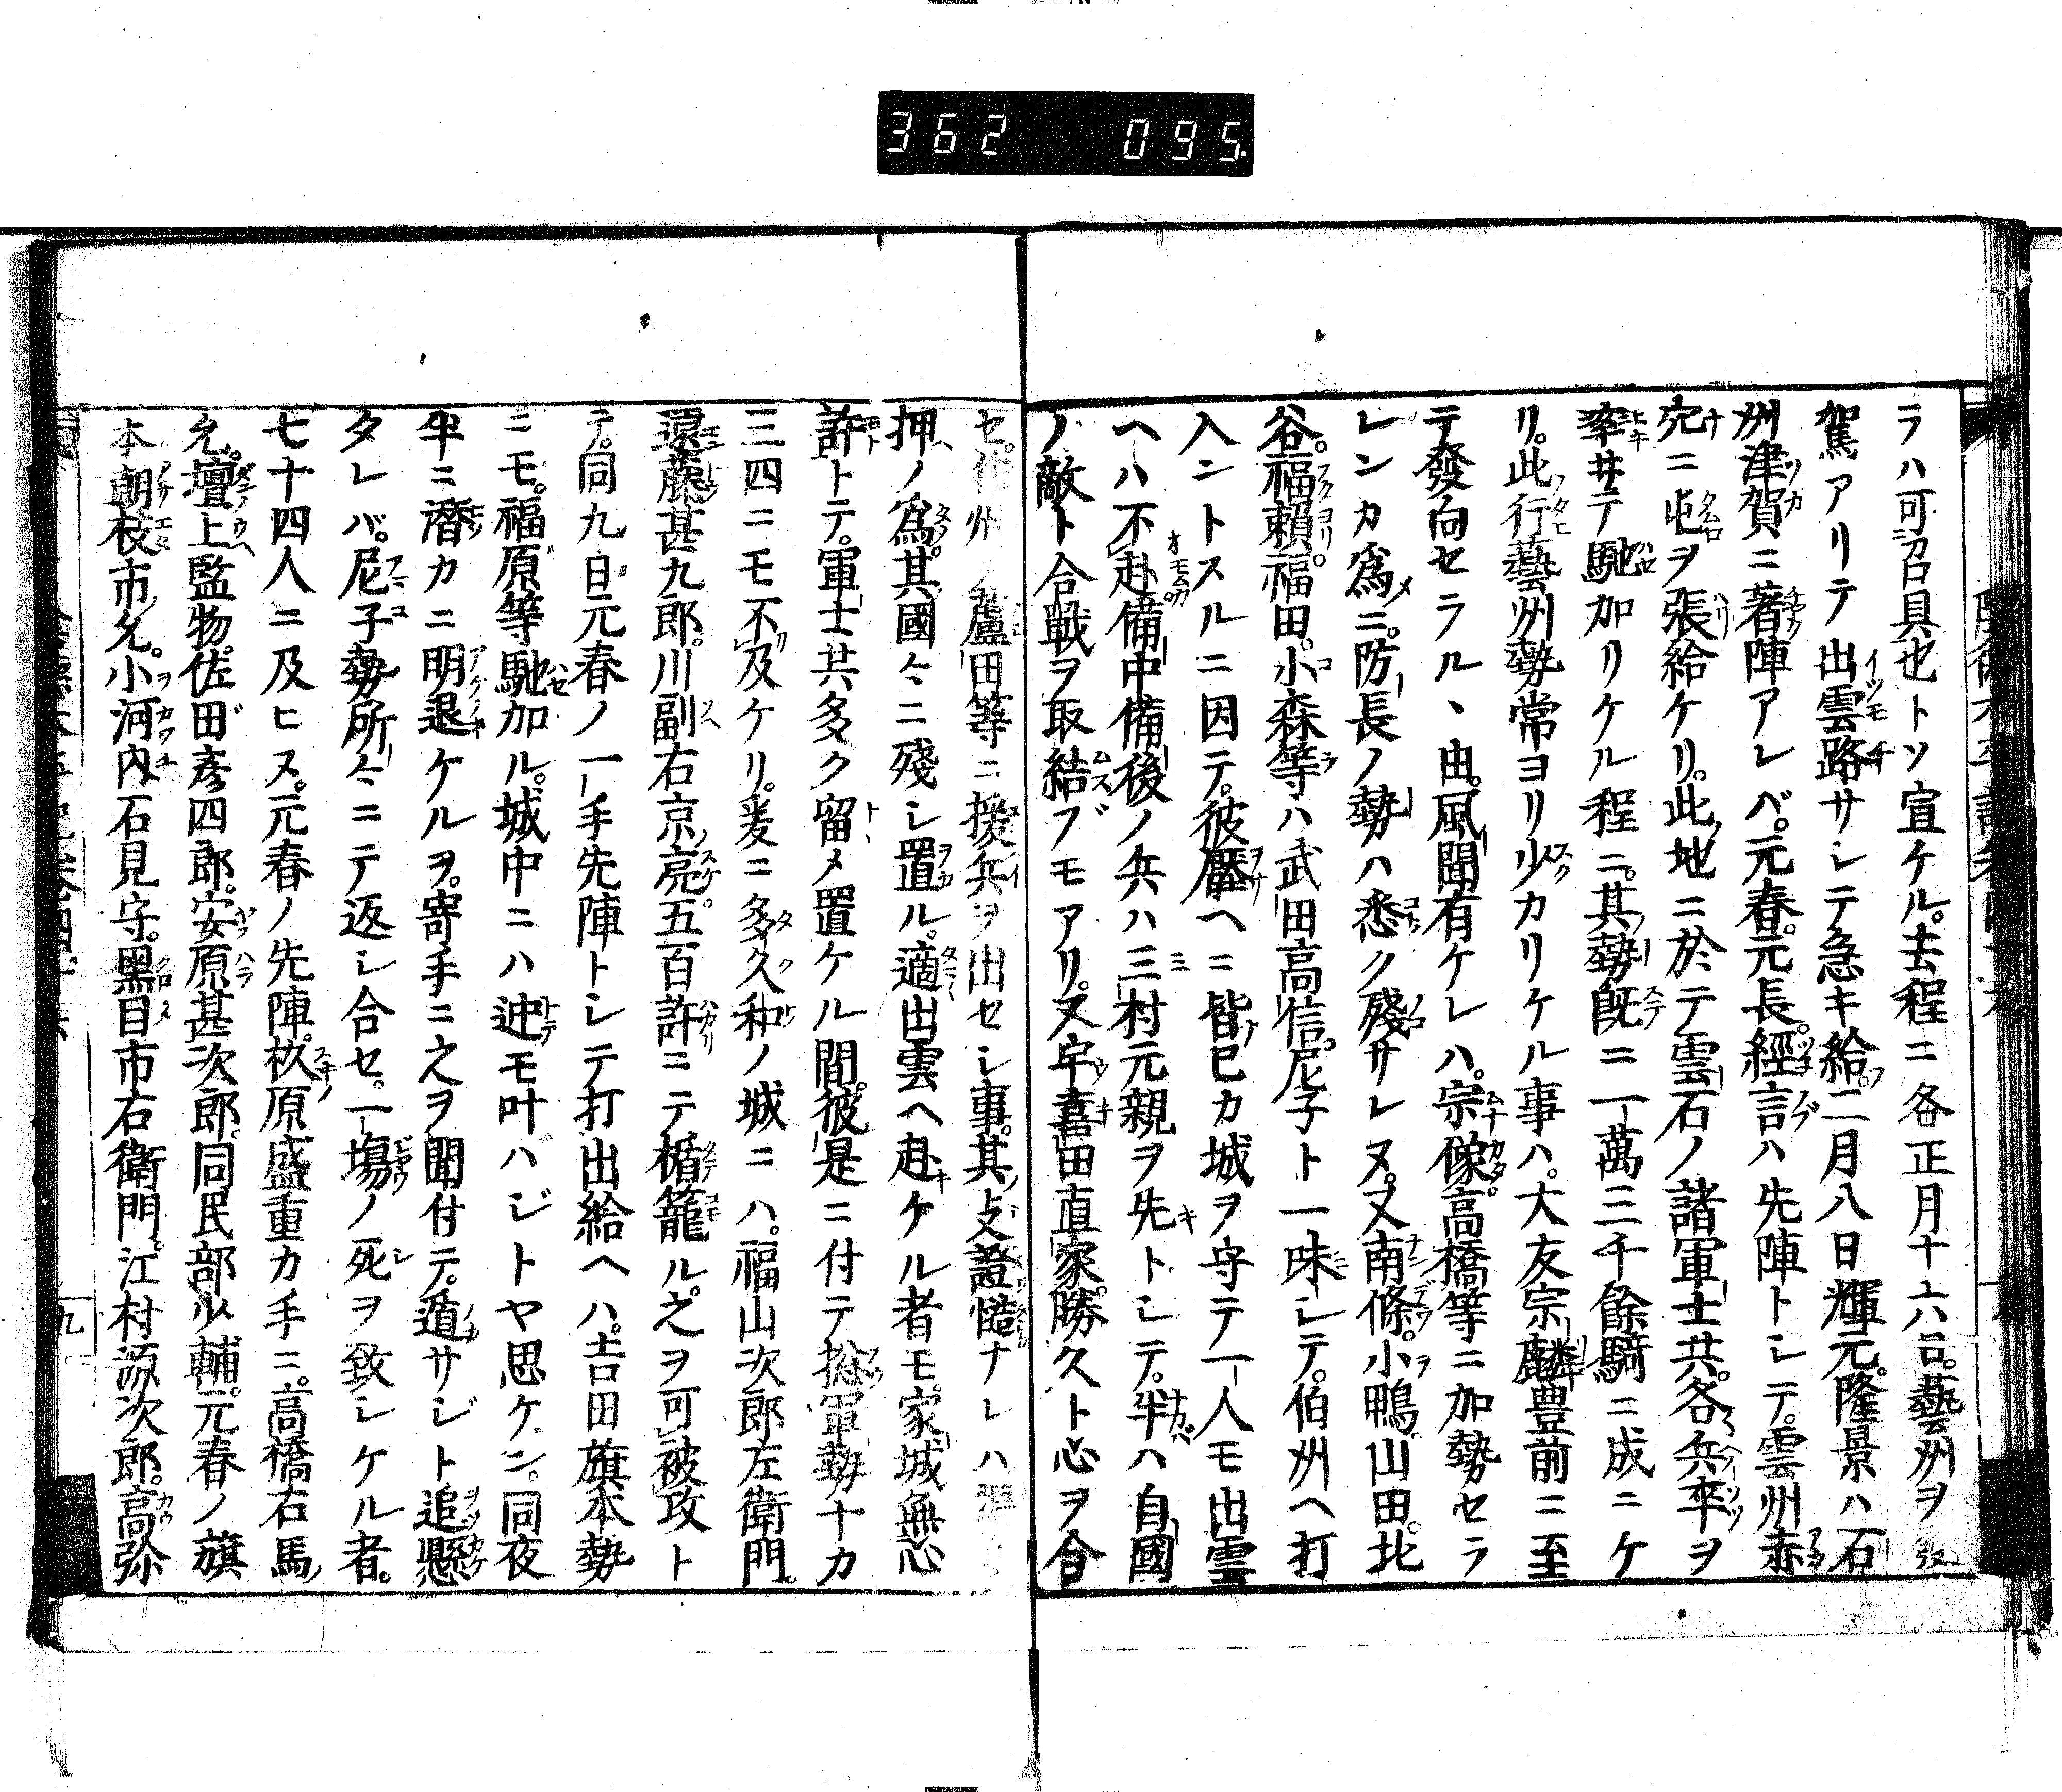 362 095
ラハ可召具也トソ宣ケル。去程ニ各正月十六日。藝州ヲ發
駕アリテ出雲路サシテ急キ給。二月八日輝元。隆景ハ石
洲津賀ニ著陣アレバ。元春。元長。經言ハ先陣トシテ。雲州赤
穴ニ屯ヲ張給ケリ。此地ニ於テ雲石ノ諸軍士共。各兵卒ヲ
率井テ馳加リケル程ニ。其勢既ニ一萬三千餘騎ニ成ニケ
リ。此行藝州勢常ヨリ少カリケル事ハ。大友宗麟豊前ニ至
テ發向セラルヽ由。風聞有ケレハ。宗像。高橋等ニ加勢セラ
レンカ爲ニ。防長ノ勢ハ悉ク殘サレヌ。又南條。小鴨。山田。北
谷。福頼。福田。小森等ハ武田高信。尼子ト一味シテ。伯州ヘ打
入ントスルニ因テ。彼壓ヘニ皆己カ城ヲ守テ一人モ出雲
ヘハ不赴備中備後ノ兵ハ三村元親ヲ先トシテ。半ハ自國
ノ敵ト合戰ヲ取結ブモアリ。又宇喜田直家。勝久ト心ヲ合
セ。作州ノ蘆田等ニ援兵ヲ出セシ事。其支證慥ナレハ
押ノ爲。其國々ニ殘シ置ル。適出雲ヘ赴ケル者モ。家城無心
許トテ。軍士共多ク留メ置ケル間。彼是ニ付テ捴軍勢十カ
三四ニモ不及ケリ。爰ニ多久和ノ城ニハ。福山次郎左衛門。
遠藤甚九郎。川副右京亮。五百許ニテ楯籠ル。之ヲ可被攻ト
テ。同九日元春ノ一手先陣トシテ打出給ヘハ。吉田旗本勢
ニモ。福原等馳加ル。城中ニハ迚モ叶ハジトヤ思ケン。同夜
半ニ潛カニ明退ケルヲ。寄手ニ之ヲ聞付テ。遁サジト追懸
タレバ。尼子勢所々ニテ返シ合セ。一塲ノ死ヲ致シケル者。
七十四人ニ及ヒヌ。元春ノ先陣。杦原盛重カ手ニ。高橋右馬
允。壇上監物。佐田彦四郎。安原甚次郎。同民部少輔。元春ノ旗
本朝枝市允。小河内石見守。黑目市右衛門。江村源次郎。高弥
九